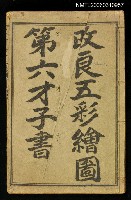 改良五彩繪圖
第六才子書